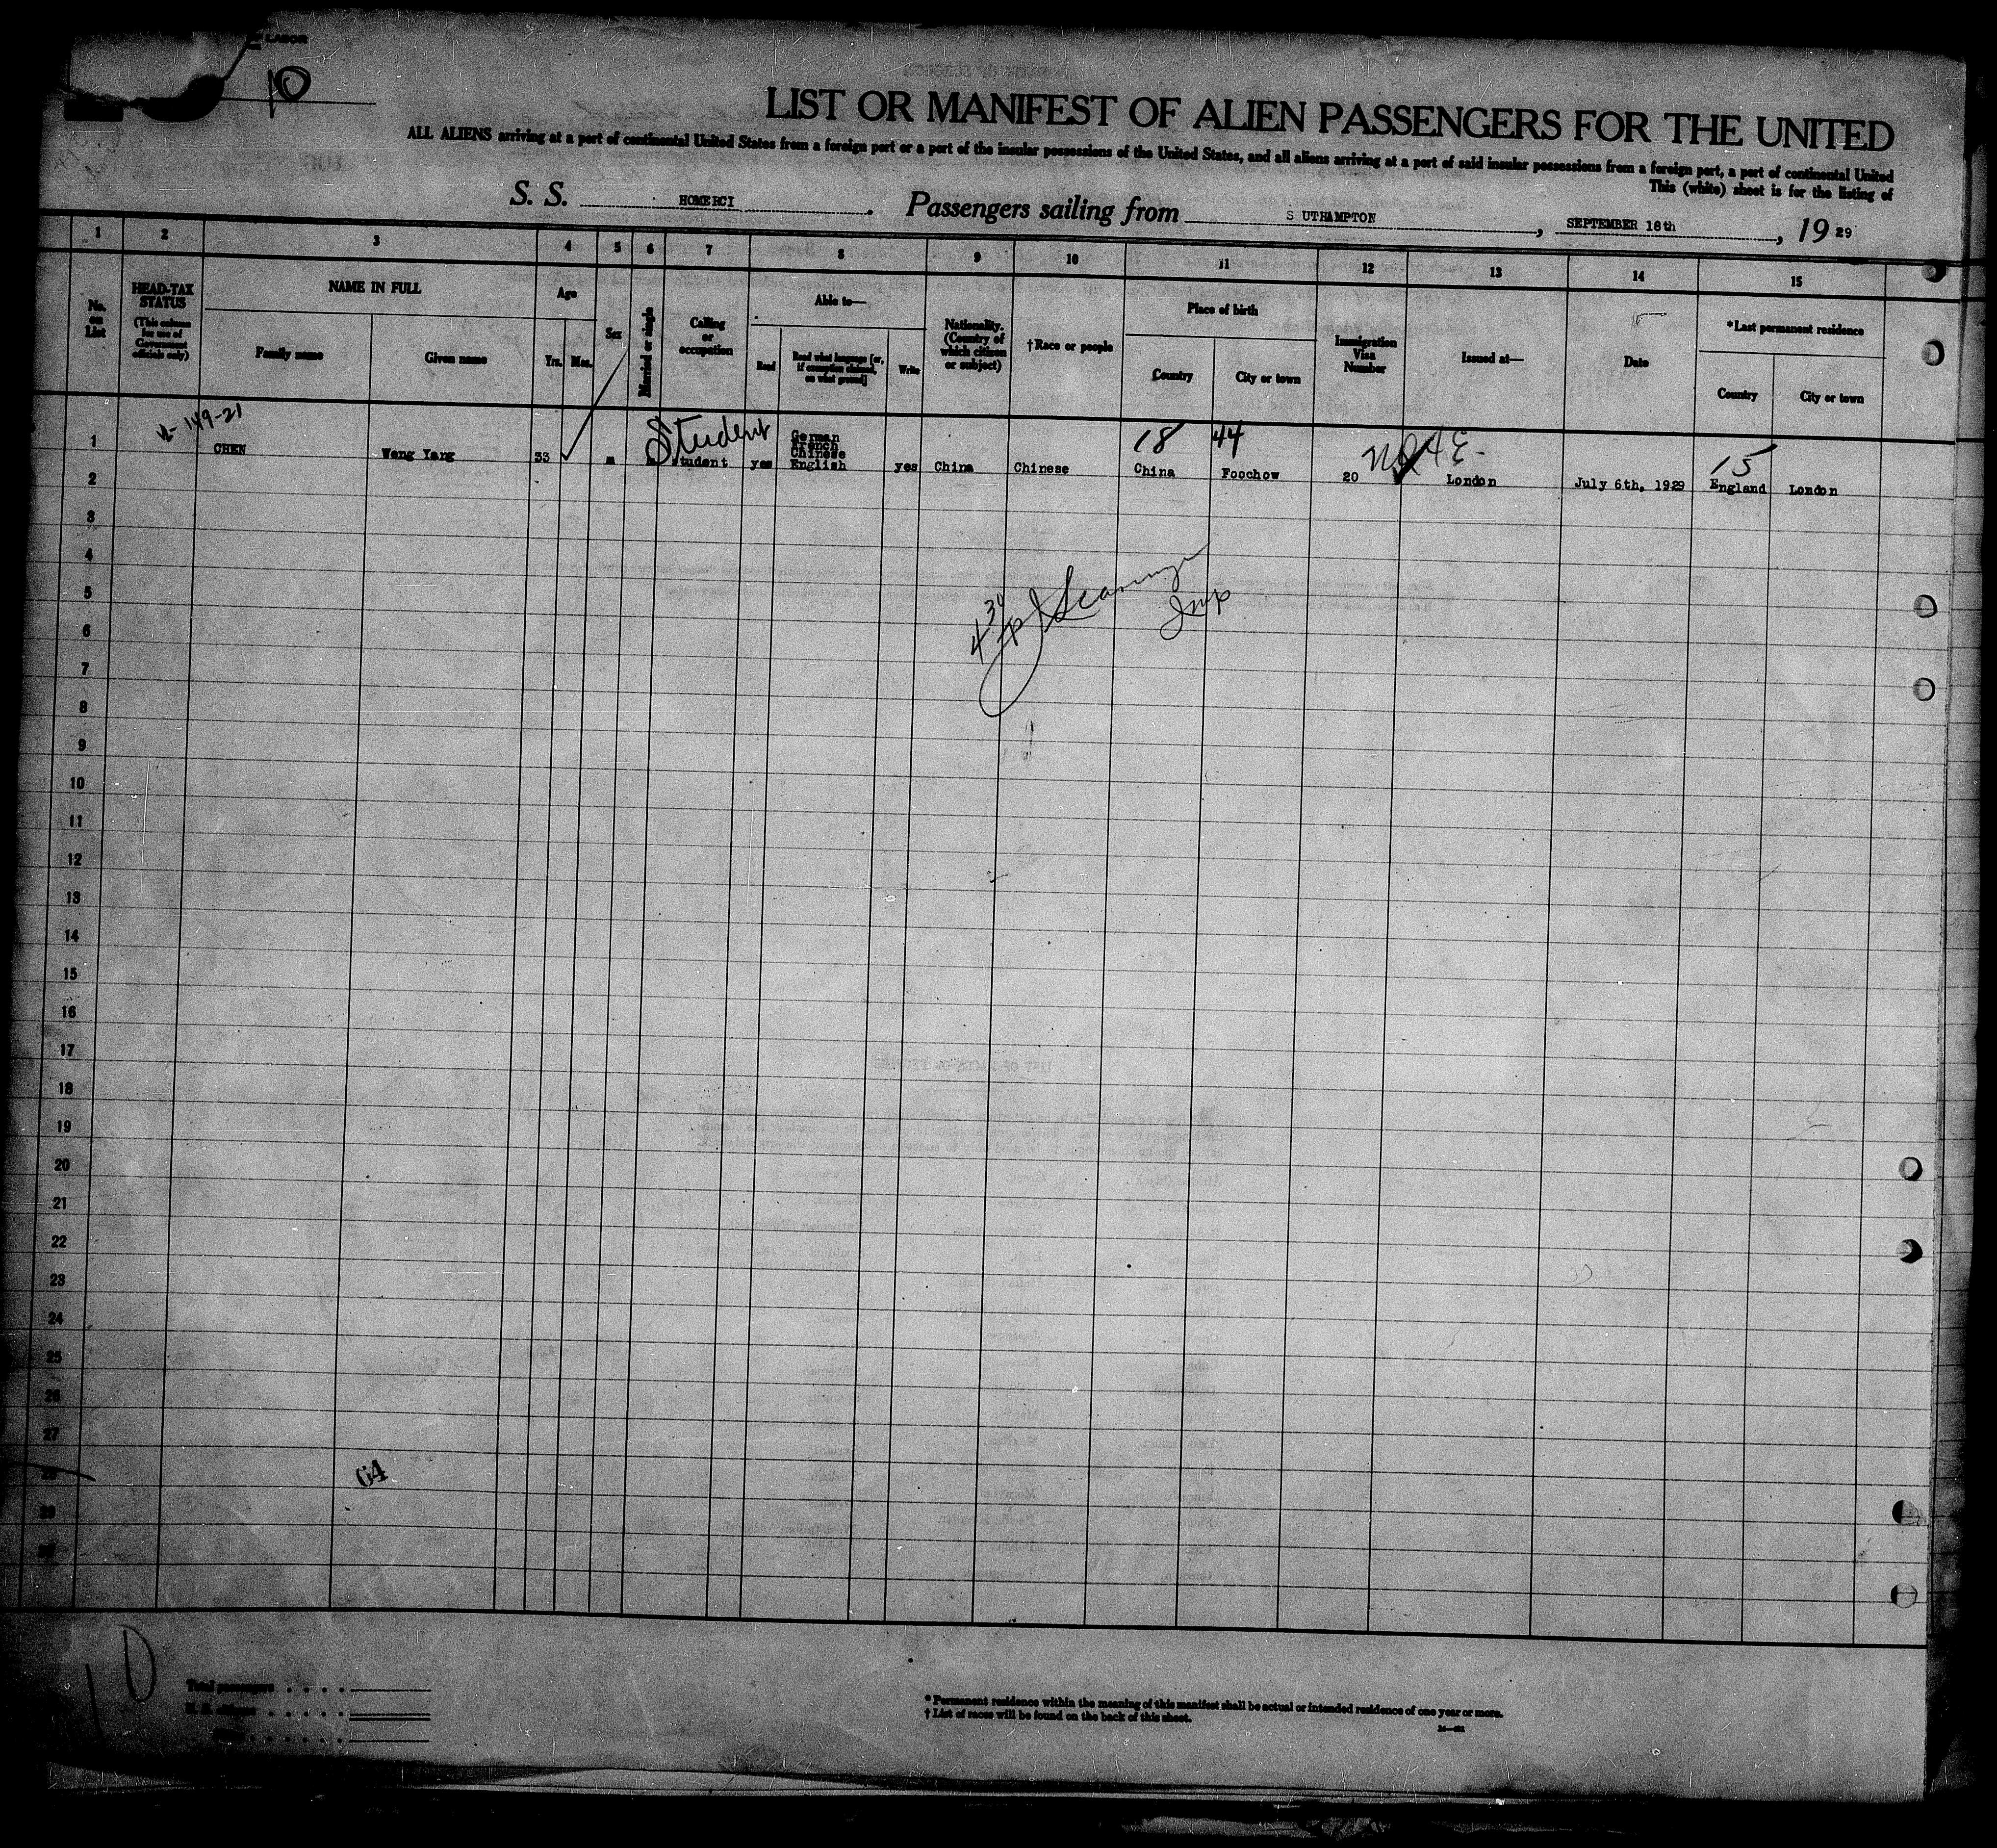 LABOR
10
LIST OR MANIFEST OF ALIEN PASSENGERS FOR THE UNITED
ALL ALIENS arriving at a port of continental United States from a foreign port or a port of the insular possessions of the United States, and all aliens arriving at a port of said insular possessions from a foreign port, a port of continental United
This (white) sheet is for the listing of
S. S. HOMERCI. Passengers sailing from S UTHAMPTON, SEPTEMBER 18th, 19 29
1 2 3 4 5 6 7 8 9 10 11 12 13 14 15
No. on List
HEAD-TAX STATUS (This column for use of Government officials only)
NAME IN FULL
Family name Given name
Age
Yrs. Mos.
Sex
Married or single
Calling or occupation
Able to—
Read Read what language [or, if exemption claimed, on what ground] Write
Nationality. (Country of which citizen or subject)
†Race or people
Place of birth
Country City or town
Immigration Visa Number
Issued at—
Date
*Last permanent residence
Country City or town
149-21
Student
18 44
15
1 CHEN Weng Yang 33 m student yes German French Chinese English yes China Chinese China Foochow 20 London July 6th, 1929 England London
2
3
4
5
6
7
8
9
10
11
12
13
14
15
16
17
18
19
20
21
22
23
24
25
26
27
64
10
Total passengers
* Permanent residence within the meaning of this manifest shall be actual or intended residence of one year or more.
† List of races will be found on the back of this sheet.